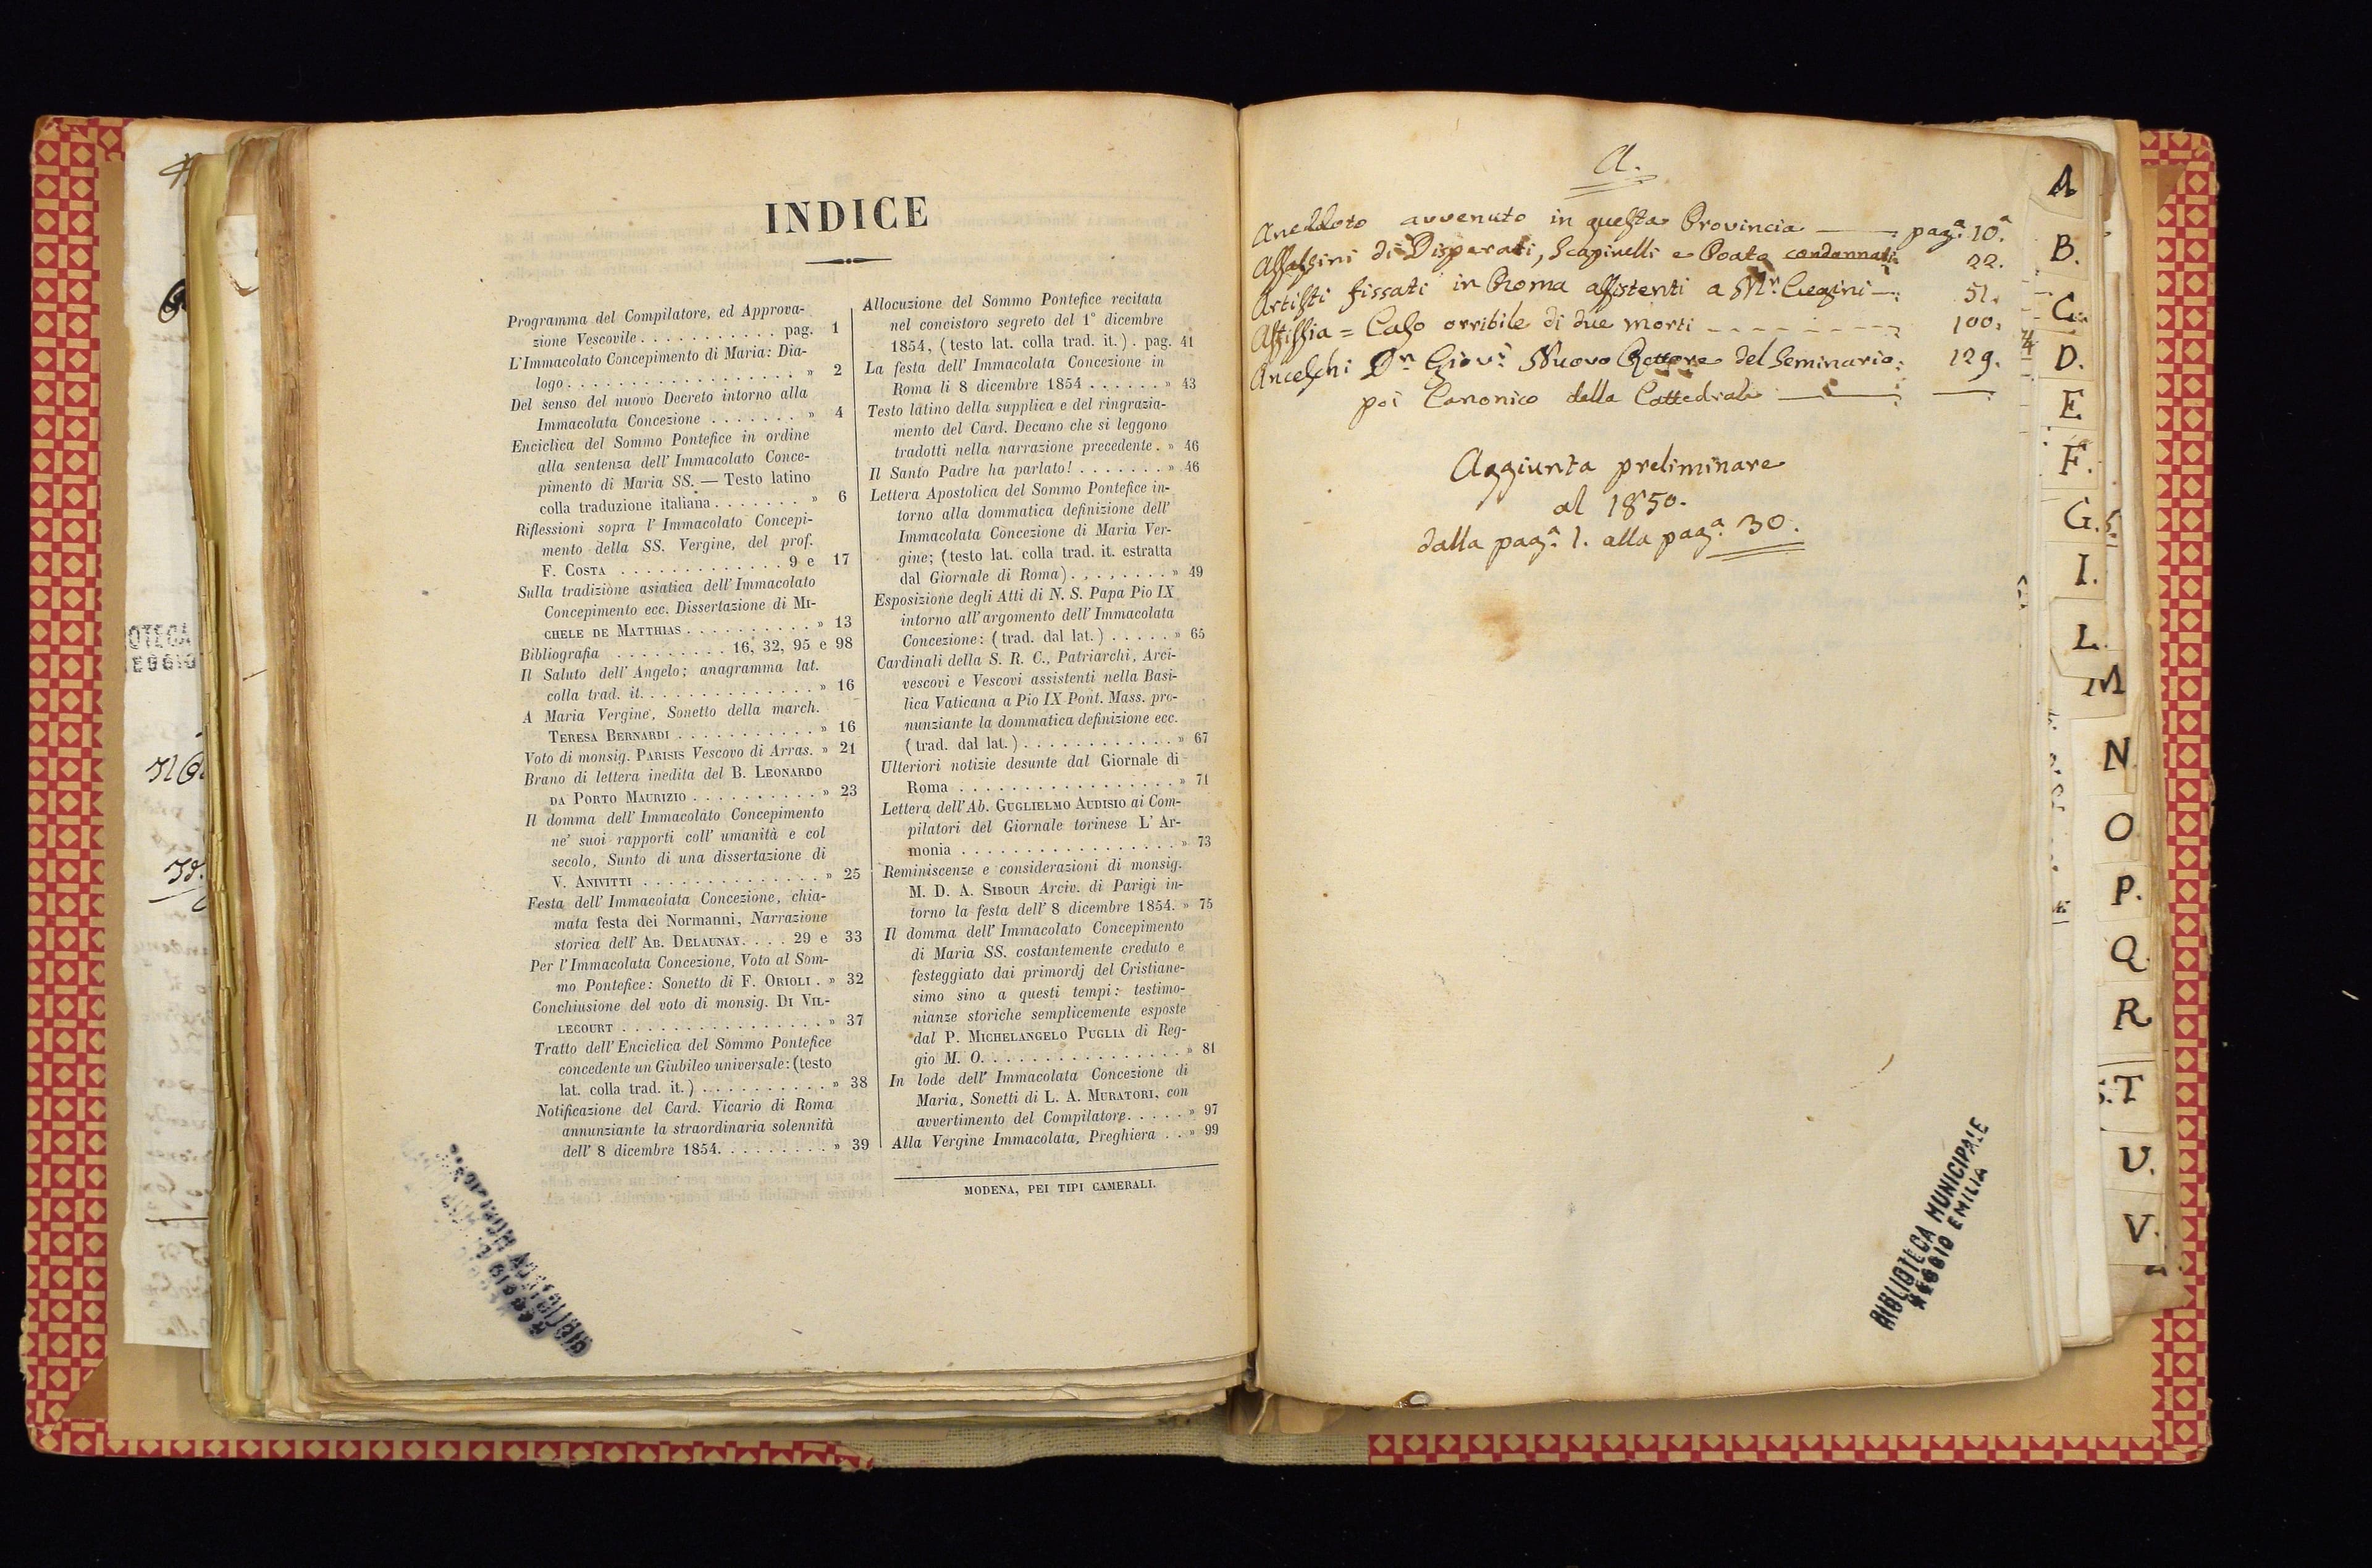 INDICE
Programma del Compilatore, ed Approva-
zione Vescovile . . . . . . . . . . . pag. 1
L'Immacolato Concepimento di Maria: Dia-
logo. . . . . . . . . . . . . . . . . . » 2
Del senso del nuovo Decreto intorno alla
Immacolata Concezione . . . . . . . » 4
Enciclica del Sommo Pontefice in ordine
alla sentenza dell' Immacolato Conce-
pimento di Maria SS. — Testo latino
colla traduzione italiana . . . . . . . » 6
Riflessioni sopra l' Immacolato Concepi-
mento della SS. Vergine, del prof.
F. COSTA . . . . . . . . . . . . . 9 e 17
Sulla tradizione asiatica dell' Immacolato
Concepimento ecc. Dissertazione di MI-
CHELE DE MATTHIAS . . . . . . . . . . » 13
Bibliografia . . . . . . . . . 16, 32, 95 e 98
Il Saluto dell' Angelo; anagramma lat.
colla trad. it. . . . . . . . . . . . . . » 16
A Maria Vergine, Sonetto della march.
TERESA BERNARDI . . . . . . . . . . . » 16
Voto di monsig. PARISIS Vescovo di Arras. » 21
Brano di lettera inedita del B. LEONARDO
DA PORTO MAURIZIO . . . . . . . . . . » 23
Il domma dell' Immacolato Concepimento
ne' suoi rapporti coll' umanità e col
secolo, Sunto di una dissertazione di
V. ANIVITTI . . . . . . . . . . . . . . » 25
Festa dell' Immacolata Concezione, chia-
mata festa dei Normanni, Narrazione
storica dell' AB. DELAUNAY. . . . . 29 e 33
Per l'Immacolata Concezione, Voto al Som-
mo Pontefice: Sonetto di F. ORIOLI . » 32
Conchiusione del voto di monsig. DI VIL-
LECOURT . . . . . . . . . . . . . . . . » 37
Tratto dell' Enciclica del Sommo Pontefice
concedente un Giubileo universale: (testo
lat. colla trad. it.) . . . . . . . . . . » 38
Notificazione del Card. Vicario di Roma
annunziante la straordinaria solennità
dell' 8 dicembre 1854. . . . . . . . . . » 39
Allocuzione del Sommo Pontefice recitata
nel concistoro segreto del 1° dicembre
1854, (testo lat. colla trad. it.) . pag. 41
La festa dell' Immacolata Concezione in
Roma li 8 dicembre 1854 . . . . . . » 43
Testo latino della supplica e del ringrazia-
mento del Card. Decano che si leggono
tradotti nella narrazione precedente . » 46
Il Santo Padre ha parlato! . . . . . . . » 46
Lettera Apostolica del Sommo Pontefice in-
torno alla dommatica definizione dell'
Immacolata Concezione di Maria Ver-
gine; (testo lat. colla trad. it. estratta
dal Giornale di Roma) . . . . . . . . » 49
Esposizione degli Atti di N. S. Papa Pio IX
intorno all' argomento dell' Immacolata
Concezione: (trad. dal lat.) . . . . . » 65
Cardinali della S. R. C., Patriarchi, Arci-
vescovi e Vescovi assistenti nella Basi-
lica Vaticana a Pio IX Pont. Mass. pro-
nunziante la dommatica definizione ecc.
(trad. dal lat.) . . . . . . . . . . . . » 67
Ulteriori notizie desunte dal Giornale di
Roma . . . . . . . . . . . . . . . . . » 71
Lettera dell' Ab. GUGLIELMO AUDISIO ai Com-
pilatori del Giornale torinese L' Ar-
monia . . . . . . . . . . . . . . . . . » 73
Reminiscenze e considerazioni di monsig.
M. D. A. SIBOUR Arciv. di Parigi in-
torno la festa dell' 8 dicembre 1854. » 75
Il domma dell' Immacolato Concepimento
di Maria SS. costantemente creduto e
festeggiato dai primordj del Cristiane-
simo sino a questi tempi: testimo-
nianze storiche semplicemente esposte
dal P. MICHELANGELO PUGLIA di Reg-
gio M. O. . . . . . . . . . . . . . . . » 81
In lode dell' Immacolata Concezione di
Maria, Sonetti di L. A. MURATORI, con
avvertimento del Compilatore. . . . . » 97
Alla Vergine Immacolata, Preghiera . . » 99
MODENA, PEI TIPI CAMERALI.
A.
Aneddoto avvenuto in questa Provincia —— pagª. 10ª.
Assassini di Disperati, Scapinelli e Poata condannati. 22.
Artisti fissati in Roma assistenti a Mr. —: 51.
Assissia = Caso orribile di due morti - - - - - 100.
Anceschi Dn Giovi Nuovo Rettore del Seminario: 129.
poi Canonico della Cattedrale ——: ——
Aggiunta preliminare
al 1850.
dalla pagª. 1. alla pagª. 30.
BIBLIOTECA MUNICIPALE
REGGIO EMILIA
A
B.
C.
D.
E.
F.
G.
I.
L.
M
N
O
P.
Q
R
T
U.
V.